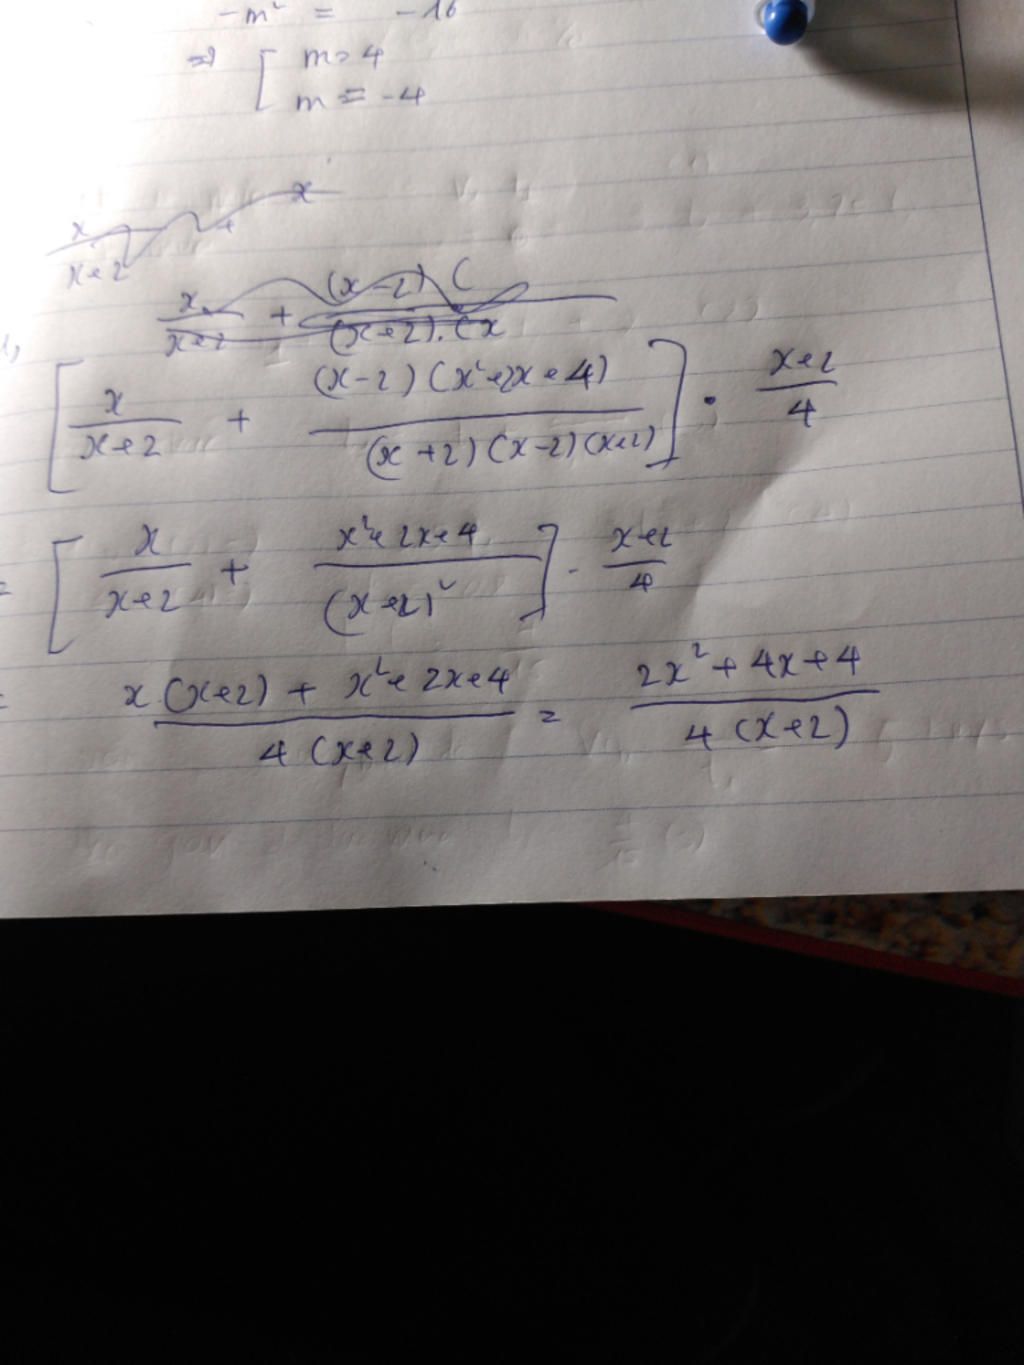 -m² = -16
=> [ m = 4
m = -4
x
x/(x+2) +
x/(x+2) + (x-2) (/(x+2).(x
[x/(x+2) + (x-2)(x²+2x+4)/((x+2)(x-2)(x+2))] . (x+2)/4
= [x/(x+2) + (x²+2x+4)/(x+2)²] . (x+2)/4
= (x(x+2) + x²+2x+4)/(4(x+2)) = (2x²+4x+4)/(4(x+2))